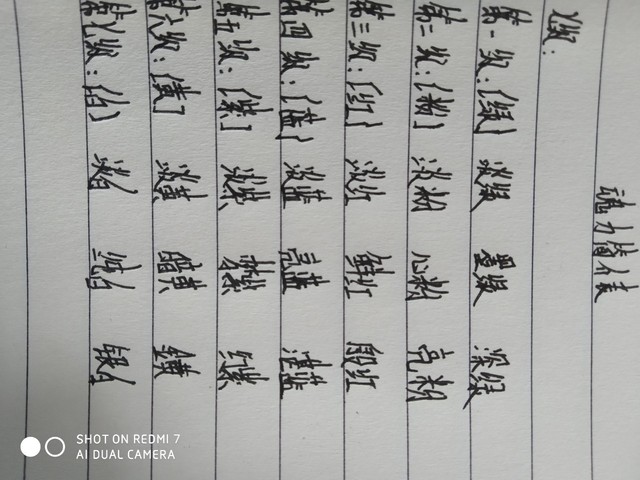 魂力
级:
第一级:{绿} 淡绿 墨绿 深绿
第二级:{粉] 淡粉 心粉 亮粉
第三级:{红} 淡红 鲜红 殷红
第四级:{蓝} 淡蓝 亮蓝 湛蓝
第五级:{紫] 淡紫 红紫
第六级:{黄] 淡黄
第七级:{白} 淡白 纯白 银白
SHOT ON REDMI 7
AI DUAL CAMERA